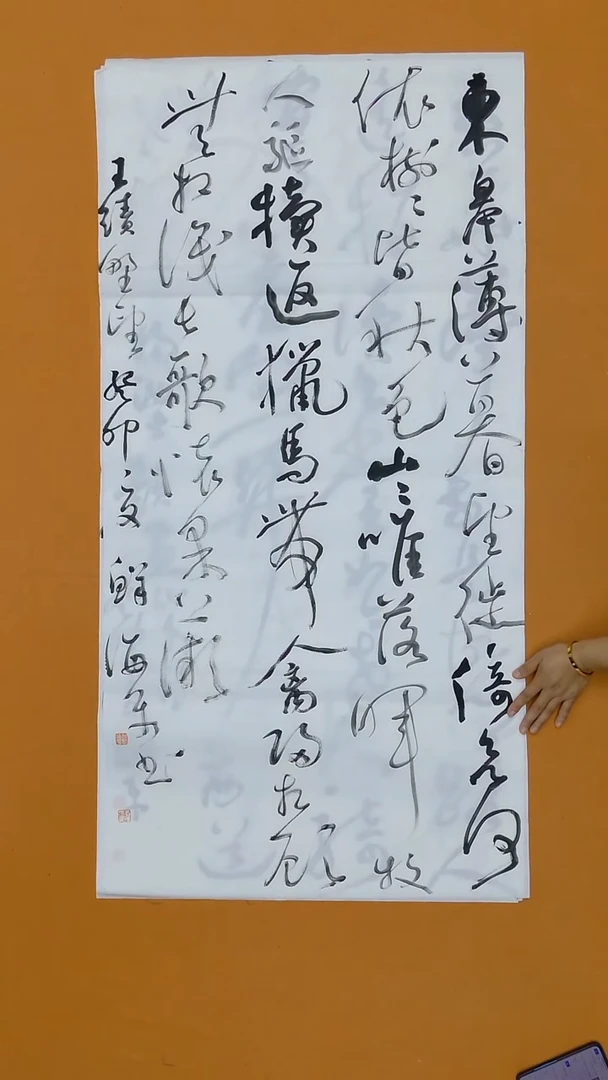 東皋薄暮望徙倚欲何
依樹〻皆秋色山〻唯落暉牧
人驅犢返獵馬帶禽歸相顧
無相識長歌懷采薇
王績野望癸卯之夏鮮海书